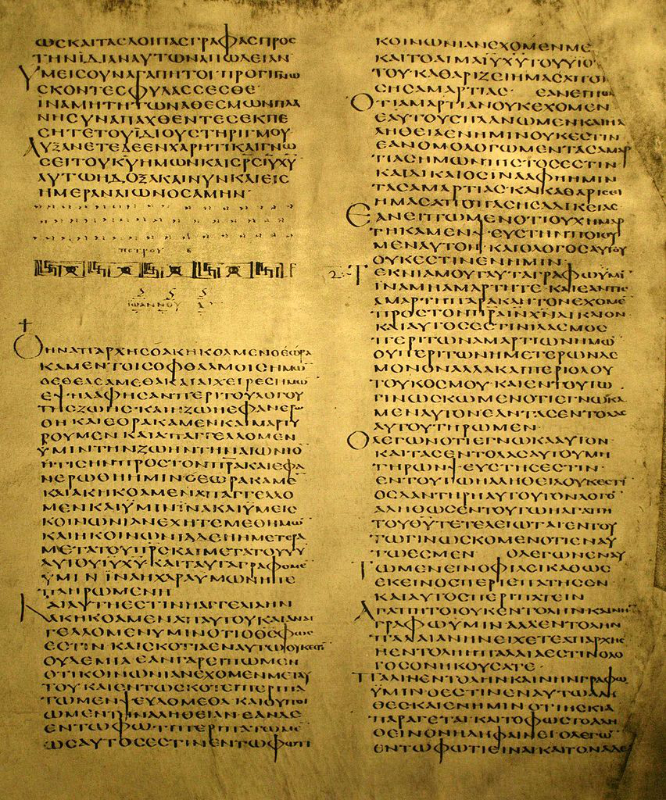 ΩϹΚΑΙΤΑϹΛΟΙΠΑϹΓΡΑΦΑϹΠΡΟϹ
ΤΗΝΙΔΙΑΝΑΥΤΩΝΑΠΩΛΕΙΑΝ
ΥΜΕΙϹΟΥΝΑΓΑΠΗΤΟΙΠΡΟΓΙΝΩ
ϹΚΟΝΤΕϹΦΥΛΑϹϹΕϹΘΕ
ΙΝΑΜΗΤΗΤΩΝΑΘΕϹΜΩΝΠΛΑ
ΝΗϹΥΝΑΠΑΧΘΕΝΤΕϹΕΚΠΕ
ϹΗΤΕΤΟΥΙΔΙΟΥϹΤΗΡΙΓΜΟΥ
ΑΥΞΑΝΕΤΕΔΕΕΝΧΑΡΙΤΙΚΑΙΓΝΩ
ϹΕΙΤΟΥΚΥΗΜΩΝΚΑΙϹΡϹΙΥΧΥ
ΑΥΤΩΗΔΟΞΑΚΑΙΝΥΝΚΑΙΕΙϹ
ΗΜΕΡΑΝΑΙΩΝΟϹΑΜΗΝ
ΠΕΤΡΟΥ Β
ΙΩΑΝΝΟΥ Α
ΟΗΝΑΠΑΡΧΗϹΟΑΚΗΚΟΑΜΕΝΟΕΩΡΑ
ΚΑΜΕΝΤΟΙϹΟΦΘΑΛΜΟΙϹΗΜΩ
ΟΕΘΕΑϹΑΜΕΘΑΚΑΙΑΙΧΕΙΡΕϹΗΜΩ
ΕΨΗΛΑΦΗϹΑΝΠΕΡΙΤΟΥΛΟΓΟΥ
ΤΗϹΖΩΗϹΚΑΙΗΖΩΗΕΦΑΝΕΡΩ
ΘΗΚΑΙΕΟΡΑΚΑΜΕΝΚΑΙΜΑΡΤΥ
ΡΟΥΜΕΝΚΑΙΑΠΑΓΓΕΛΛΟΜΕΝ
ΥΜΙΝΤΗΝΖΩΗΝΤΗΝΑΙΩΝΙΟ
ΗΤΙϹΗΝΠΡΟϹΤΟΝΠΡΑΚΑΙΕΦΑ
ΝΕΡΩΘΗΗΜΙΝΟΕΩΡΑΚΑΜΕ
ΚΑΙΑΚΗΚΟΑΜΕΝΑΠΑΓΓΕΛΛΟ
ΜΕΝΚΑΙΥΜΙΝΙΝΑΚΑΙΥΜΕΙϹ
ΚΟΙΝΩΝΙΑΝΕΧΗΤΕΜΕΘΗΜΩ
ΚΑΙΗΚΟΙΝΩΝΙΑΔΕΗΗΜΕΤΕΡΑ
ΜΕΤΑΤΟΥΠΡϹΚΑΙΜΕΤΑΤΟΥΥΥ
ΑΥΙΟΥΙΥΧΥΚΑΙΤΑΥΤΑΓΡΑΦΟΜΕ
ΥΜΙΝΙΝΑΗΧΑΡΑΥΜΩΝΗΠΕ
ΠΛΗΡΩΜΕΝΗ
ΚΑΙΑΥΤΗΕϹΤΙΝΗΑΓΓΕΛΙΑΗΝ
ΑΚΗΚΟΑΜΕΝΑΠΑΥΤΟΥΚΑΙΑΝΑΓ
ΓΕΛΛΟΜΕΝΥΜΙΝΟΤΙΟΘϹΦΩϹ
ΕϹΤΙΝΚΑΙϹΚΟΤΙΑΕΝΑΥΤΩΟΥΚΕϹΤΙ
ΟΥΔΕΜΙΑΕΑΝΓΑΡΕΙΠΩΜΕΝ
ΟΤΙΚΟΙΝΩΝΙΑΝΕΧΟΜΕΝΜΕΤΑΥ
ΤΟΥΚΑΙΕΝΤΩϹΚΟΤΕΙΠΕΡΙΠΑ
ΤΩΜΕΝΨΕΥΔΟΜΕΘΑΚΑΙΟΥΠΟΙ
ΩΜΕΝΤΗΝΑΛΗΘΕΙΑΝΕΑΝΔΕ
ΕΝΤΩΦΩΤΙΠΕΡΙΠΑΤΩΜΕ
ΩϹΑΥΤΟϹΕϹΤΙΝΕΝΤΩΦΩΤΙ
ΚΟΙΝΩΝΙΑΝΕΧΟΜΕΝΜΕ
ΚΑΙΤΟΑΙΜΑΙΥΧΥΤΟΥΥΙΟΥ
ΤΟΥΚΑΘΑΡΙΖΕΙΗΜΑϹΑΠΟΠΑ
ϹΗϹΑΜΑΡΤΙΑϹ ΕΑΝΕΙΠΩ
ΟΤΙΑΜΑΡΤΙΑΝΟΥΚΕΧΟΜΕΝ
ΕΑΥΤΟΥϹΠΛΑΝΩΜΕΝΚΑΙΗΑ
ΛΗΘΕΙΑΕΝΗΜΙΝΟΥΚΕϹΤΙΝ
ΕΑΝΟΜΟΛΟΓΩΜΕΝΤΑϹΑΜΑΡ
ΤΙΑϹΗΜΩΝΠΙϹΤΟϹΕϹΤΙΝ
ΚΑΙΔΙΚΑΙΟϹΙΝΑΑΦΗΗΜΙΝ
ΤΑϹΑΜΑΡΤΙΑϹΚΑΙΚΑΘΑΡΙϹΕΙ
ΗΜΑϹΑΠΟΠΑϹΗϹΑΔΙΚΕΙΑϹ
ΕΑΝΕΙΠΩΜΕΝΟΤΙΟΥΧΗΜΑΡ
ΤΗΚΑΜΕΝΨΕΥϹΤΗΝΠΟΙΟΥ
ΜΕΝΑΥΤΟΝΚΑΙΟΛΟΓΟϹΑΥΤΟΥ
ΟΥΚΕϹΤΙΝΕΝΗΜΙΝ
ΤΕΚΝΙΑΜΟΥΤΑΥΤΑΓΡΑΦΩΥΜΙ
ΙΝΑΜΗΑΜΑΡΤΗΤΕΚΑΙΕΑΝΤΙϹ
ΑΜΑΡΤΗΠΑΡΑΚΛΗΤΟΝΕΧΟΜΕ
ΠΡΟϹΤΟΝΠΡΑΙΝΧΝΔΙΚΑΙΟΝ
ΚΑΙΑΥΤΟϹΕϹΤΙΝΙΛΑϹΜΟϹ
ΠΕΡΙΤΩΝΑΜΑΡΤΙΩΝΗΜΩ
ΟΥΠΕΡΙΤΩΝΗΜΕΤΕΡΩΝΔΕ
ΜΟΝΟΝΑΛΛΑΚΑΙΠΕΡΙΟΛΟΥ
ΤΟΥΚΟϹΜΟΥΚΑΙΕΝΤΟΥΤΩ
ΓΙΝΩϹΚΩΜΕΝΟΤΙΕΓΝΩΚΑ
ΜΕΝΑΥΤΟΝΕΑΝΤΑϹΕΝΤΟΛΑϹ
ΑΥΤΟΥΤΗΡΩΜΕΝ
ΟΛΕΓΩΝΟΤΙΕΓΝΩΚΑΑΥΤΟΝ
ΚΑΙΤΑϹΕΝΤΟΛΑϹΑΥΤΟΥΜΗ
ΤΗΡΩΝΨΕΥϹΤΗϹΕϹΤΙΝ
ΕΝΤΟΥΤΩΗΑΛΗΘΕΙΑΟΥΚΕϹΤΙ
ΟϹΔΑΝΤΗΡΗΑΥΤΟΥΤΟΝΛΟΓΟ
ΑΛΗΘΩϹΕΝΤΟΥΤΩΗΑΓΑΠΗ
ΤΟΥΘΥΤΕΤΕΛΕΙΩΤΑΙΕΝΤΟΥ
ΤΩΓΙΝΩϹΚΟΜΕΝΟΤΙΕΝΑΥ
ΤΩΕϹΜΕΝ ΟΛΕΓΩΝΕΝΑΥ
ΤΩΜΕΝΕΙΝΟΦΙΛΕΙΚΑΘΩϹ
ΕΚΕΙΝΟϹΠΕΡΙΕΠΑΤΗϹΕΝ
ΚΑΙΑΥΤΟϹΠΕΡΙΠΑΤΕΙΝ
ΑΓΑΠΗΤΟΙΟΥΚΕΝΤΟΛΗΝΚΑΙΝΗ
ΓΡΑΦΩΥΜΙΝΑΛΛΕΝΤΟΛΗΝ
ΠΑΛΑΙΑΝΗΝΕΙΧΕΤΕΑΠΑΡΧΗϹ
ΗΕΝΤΟΛΗΗΠΑΛΑΙΑΕϹΤΙΝΟΛΟ
ΓΟϹΟΝΗΚΟΥϹΑΤΕ
ΠΑΛΙΝΕΝΤΟΛΗΝΚΑΙΝΗΝΓΡΑΦΩ
ΥΜΙΝΟΕϹΤΙΝΕΝΑΥΤΩΑΛΗ
ΘΕϹΚΑΙΕΝΗΜΙΝΟΤΙΗϹΚΙΑ
ΠΑΡΑΓΕΤΑΙΚΑΙΤΟΦΩϹΤΟΑΛΗ
ΘΕΙΝΟΝΗΔΗΦΑΙΝΕΙΟΛΕΓΩ
ΕΝΤΩΦΩΤΙΕΙΝΑΙΚΑΙΤΟΝΑΔΕΛ